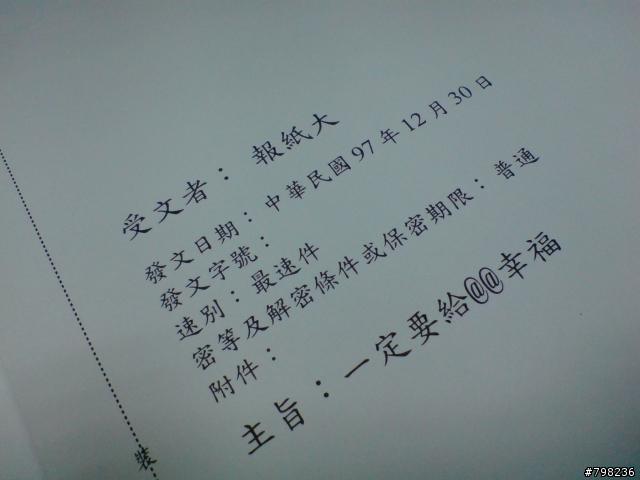 受文者：報紙大
發文日期：中華民國97年12月30日
發文字號：
速別：最速件
密等及解密條件或保密期限：普通
附件：
主旨：一定要給@@幸福
裝
#798236